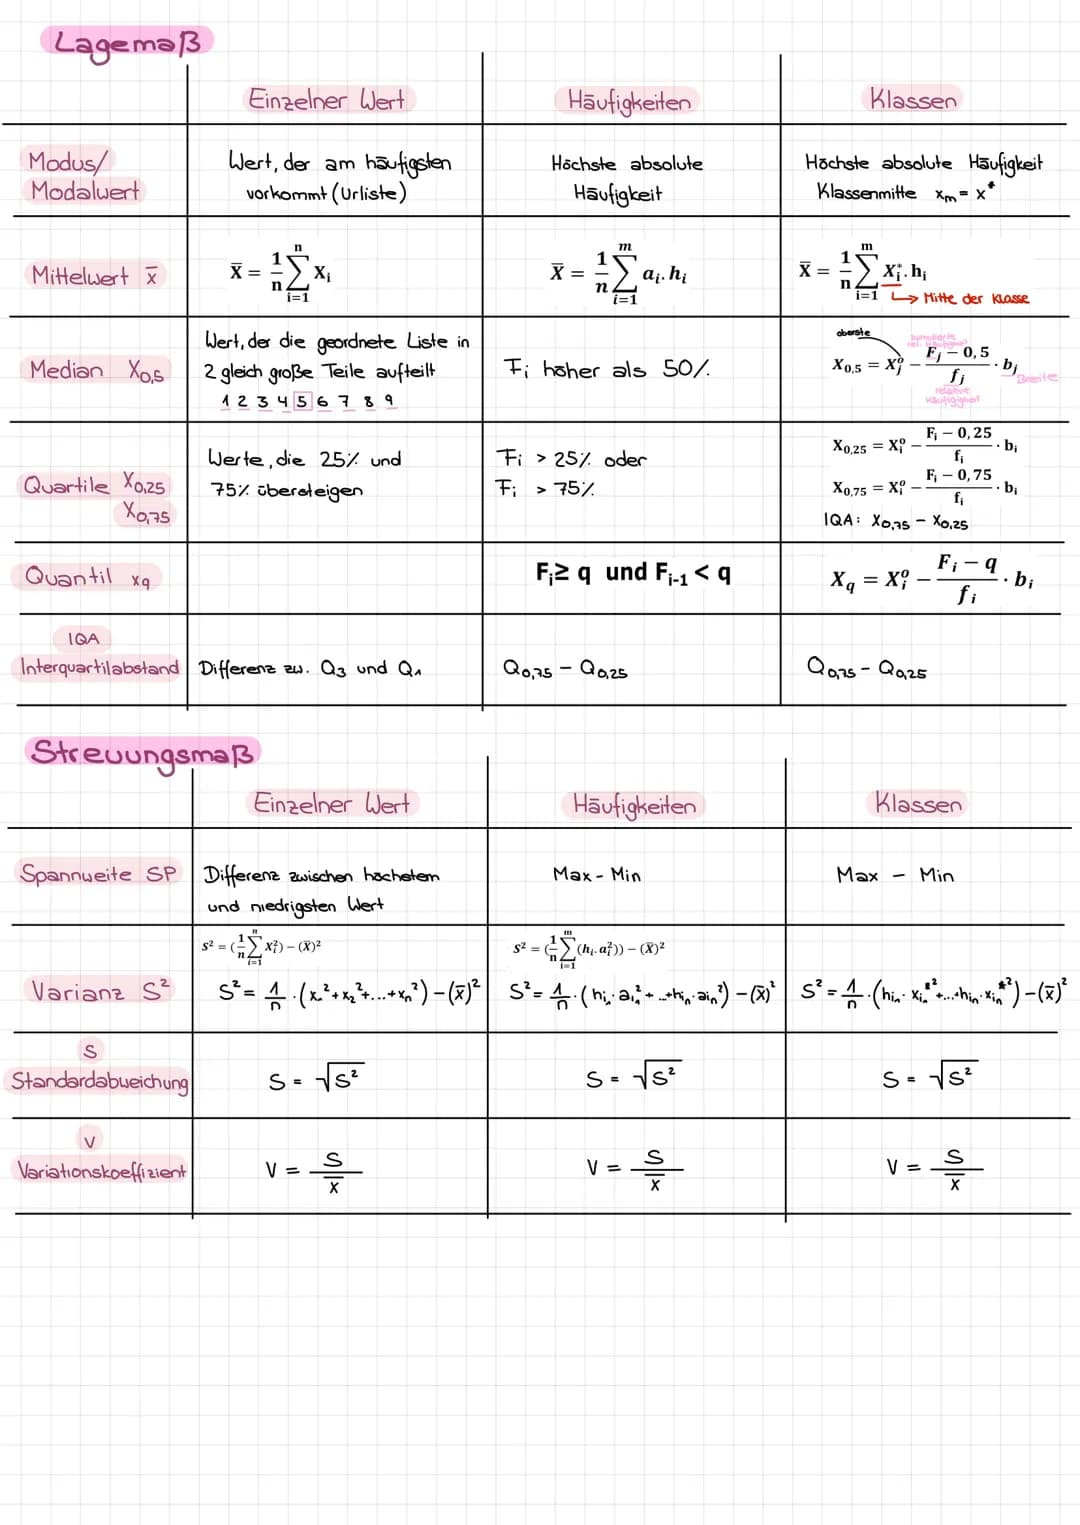 Lagemaß
Einzelner Wert
Häufigkeiten
Klassen
Modus/
Modalwert
Wert, der am häufigsten
vorkommt (Urliste)
Höchste absolute
Häufigkeit
Höchste absolute Häufigkeit
Klassenmitte xₘ = x*
Mittelwert x̅
X̅ = 1/n ∑_{i=1}^{n} Xᵢ
X̅ = 1/n ∑_{i=1}^{m} aᵢ. hᵢ
X̅ = 1/n ∑_{i=1}^{m} Xᵢ*. hᵢ
↳ Mitte der Klasse
Median X₀,₅
Wert, der die geordnete Liste in
2 gleich große Teile aufteilt
1 2 3 4 5 6 7 8 9
Fᵢ höher als 50%.
oberste
kumulierte
rel. Häufigkeit
X₀,₅ = Xⱼᵒ − (Fⱼ − 0,5)/fⱼ · bⱼ
Breite
relative
Häufigigkeit
Quartile X₀,₂₅
X₀,₇₅
Werte, die 25% und
75% übersteigen
Fᵢ > 25% oder
Fᵢ > 75%
X₀,₂₅ = Xᵢᵒ − (Fᵢ − 0,25)/fᵢ · bᵢ
X₀,₇₅ = Xᵢᵒ − (Fᵢ − 0,75)/fᵢ · bᵢ
IQA: X₀,₇₅ − X₀,₂₅
Quantil xq
Fᵢ ≥ q und Fᵢ₋₁ < q
X_q = Xᵢᵒ − (Fᵢ − q)/fᵢ · bᵢ
IQA
Interquartilabstand
Differenz zw. Q₃ und Q₁
Q₀,₇₅ − Q₀,₂₅
Q₀,₇₅ − Q₀,₂₅
Streuungsmaß
Einzelner Wert
Häufigkeiten
Klassen
Spannweite SP
Differenz zwischen höchstem
und niedrigsten Wert
Max - Min
Max - Min
Varianz S²
S² = (1/n ∑_{i=1}^{n} Xᵢ²) − (X̅)²
S² = 1/n · (x₁² + x₂² + ... + xₙ²) − (x̅)²
S² = (1/n ∑_{i=1}^{m} (hᵢ. aᵢ²)) − (X̅)²
S² = 1/n · (hi₁ · ai₁² + ... + hiₙ · aiₙ²) − (x̅)²
S² = 1/n · (hi₁ · xi₁*² + ... + hiₙ · xiₙ*²) − (x̅)²
S
Standardabweichung
S = √S²
S = √S²
S = √S²
V
Variationskoeffizient
V = S/x̅
V = S/x̅
V = S/x̅